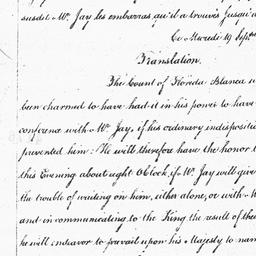 susdit Mr. Jay les embarras, qu'il a trouvés jusqu'a
Ce Mercredi 19 Septre
Translation.
The Count of Florida Blanca w
been charmed to have had it in his power to have
conferred with Mr. Jay, if his ordinary indispositi
prevented him. He will therefore have the honor t
this Evening about eight OClock, if Mr. Jay will give
the trouble of waiting on him, either alone, or with M
and in communicating to the King the result of thei
he will endeavor to prevail upon his Majesty to nam